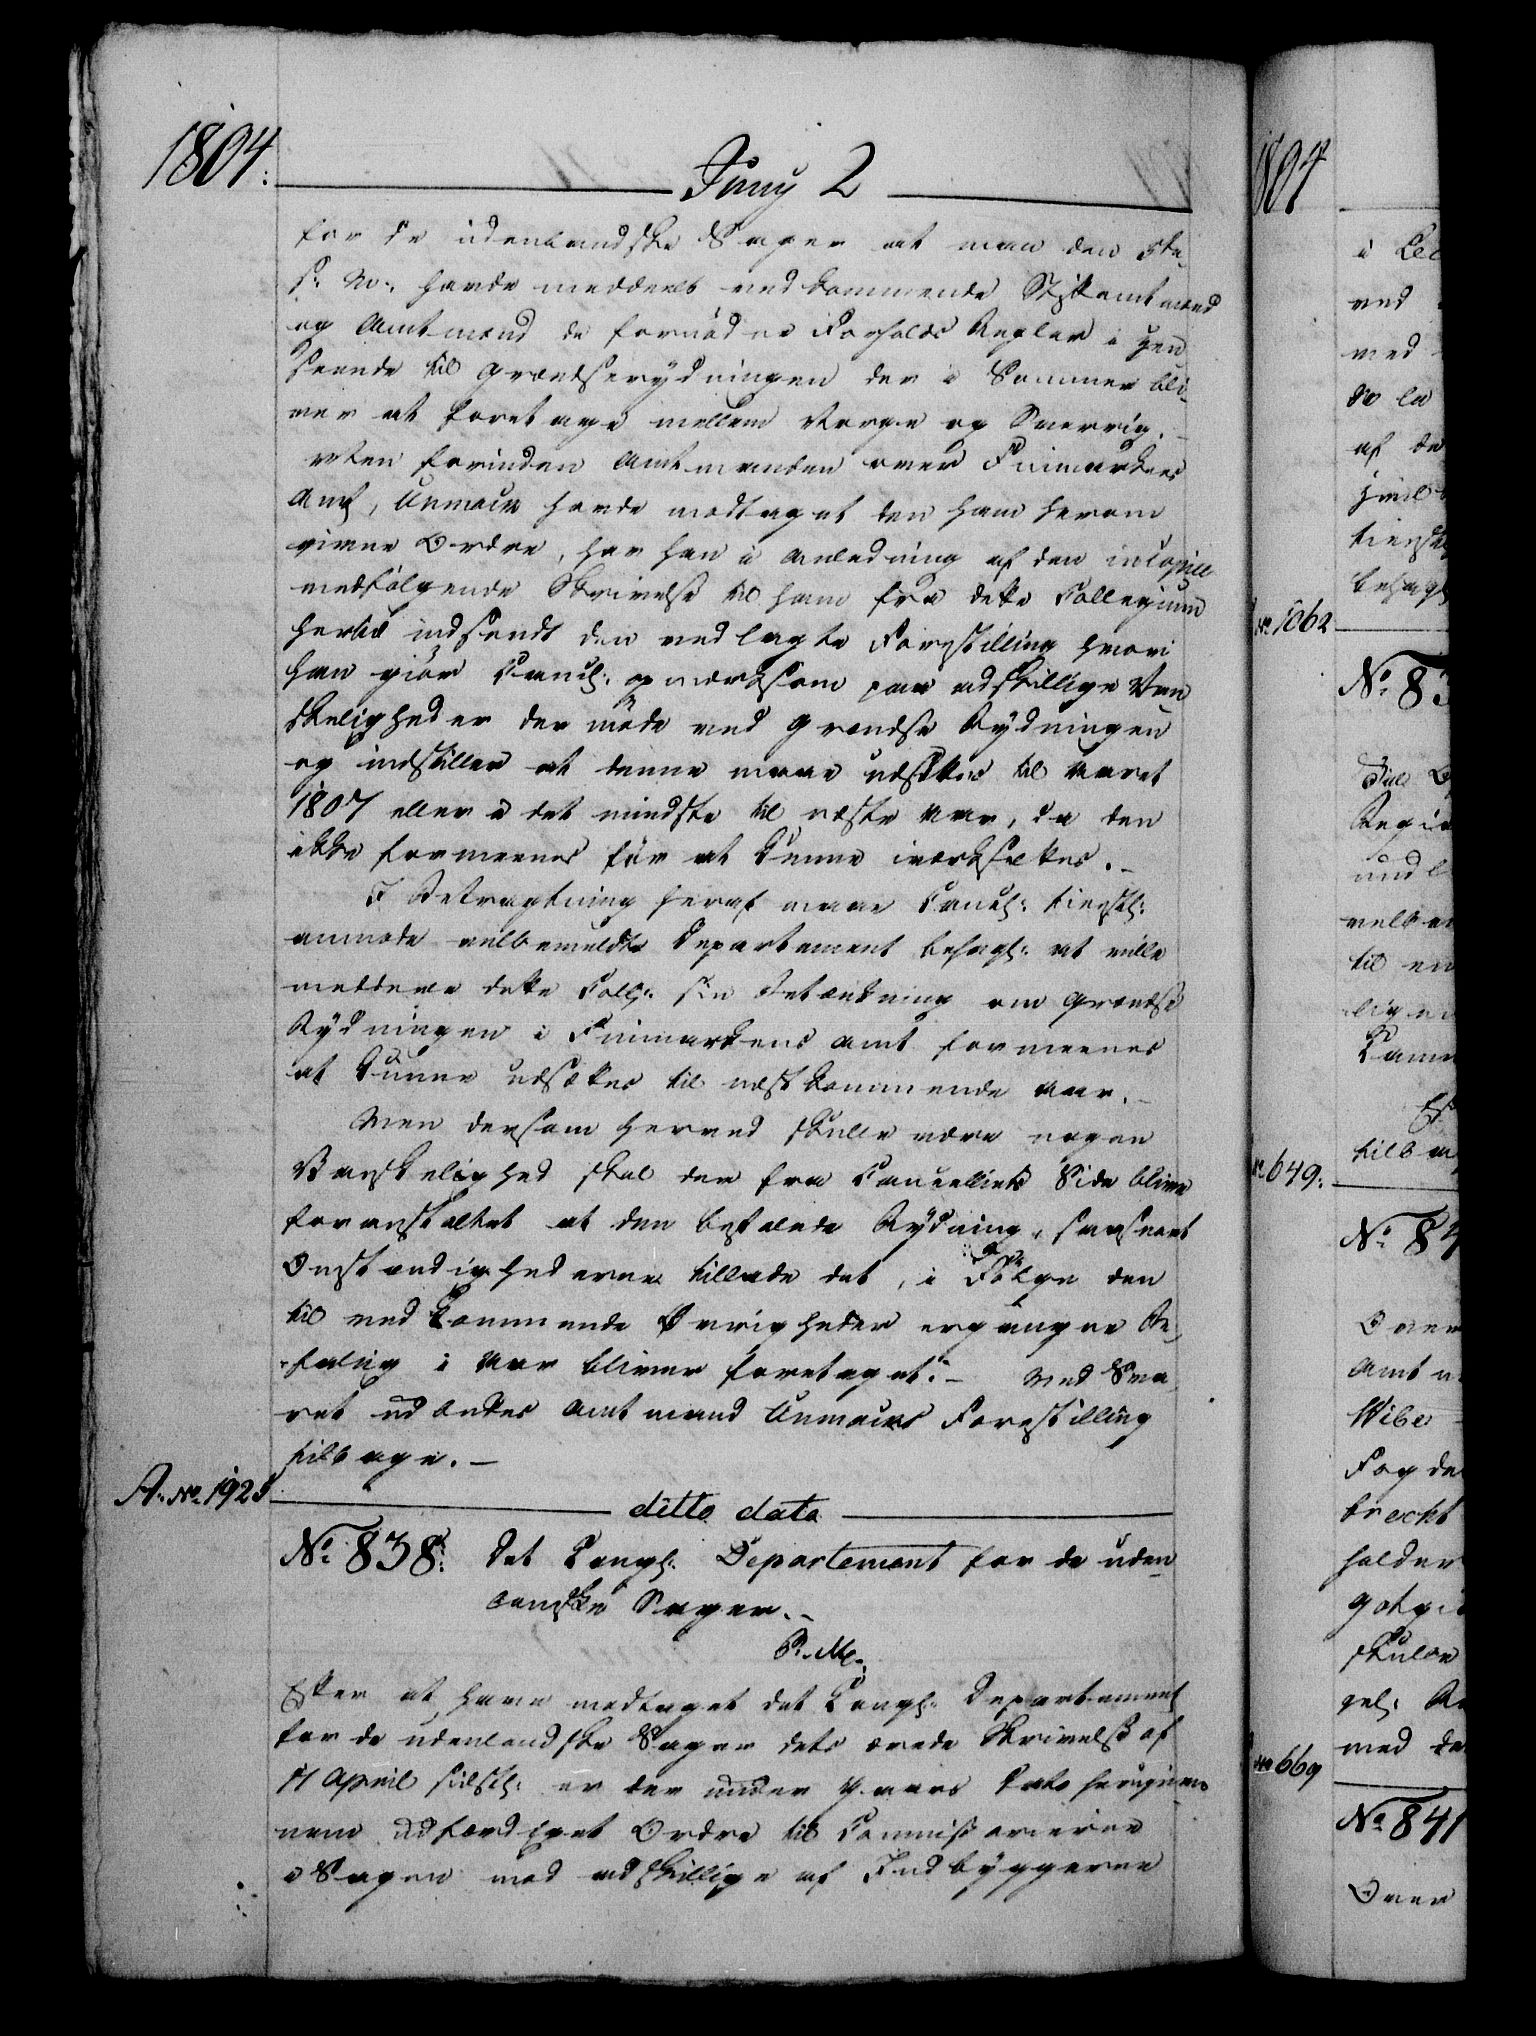 1804.
Juny 2
for de udenlandske Sager at man den 5te
f: M: havde meddeelt vedkommende Stiftamtmænd
og Amtmænd de fornødne Forholds Regler i Hen
seende til Grændserydningen der i Sommer bli-
ver at foretage mellem Norge og Sverrig.
Men forinden Amtmanden over Finmarkens
Amt, Unmack havde modtaget den ham herom
givne Ordre, har han i Anledning af den in Copia
medfølgende Skrivelse til ham fra dette Collegium
hertil indsendt den vedlagte Forestilling hvori
han giør Cancl: opmærksom paa adskillige Van
skeligheder der møde ved Grændse Rydningen
og indstiller at denne maae udsættes til Aaret
1807 eller i det mindste til næste Aar, da den
ikke formeenes før at kunne iværksættes.-
I Betragtning heraf maae Cancl: tienstl:
anmode velbemeldte Departement behagl: at ville
meddele dette Coll: sin Betænkning om Grændse
Rydningen i Finmarkens Amt formeenes
at kunne udsættes til næstkommende Aar.-
Men dersom herved skulle være nogen
Vanskelighed skal der fra Cancelliets Side blive
foranstaltet at den befalede Rydning, saasnart
Omstændighederne tillade det, i Følge den
til vedkommende Øvrigheder ergangne Be-
faling i Aar bliver foretaget.- Med Sva-
ret udbedes Amtmand Unmacks Forestilling
tilbage.-
A. No. 1925
ditto dato
No. 838. Det Kongl: Departement for de uden-
landske Sager.-
P. M.
Efter at have modtaget det Kongl: Departement
for de udenlandske Sager dets ærede Skrivelse af
17 April sidstl: er der under Gaars Dato herigien-
nem udfærdiget Ordre til Commissarierne
i Sagen mod adskillige af Indbyggerne
1804
i
ved
med
af de
No. 1062
No. 83
til en
No. 649.
No. 84
Over
Amtm
Wibe
Fogde
brecht
holder
skulde
med de
No. 669
No. 841
Over